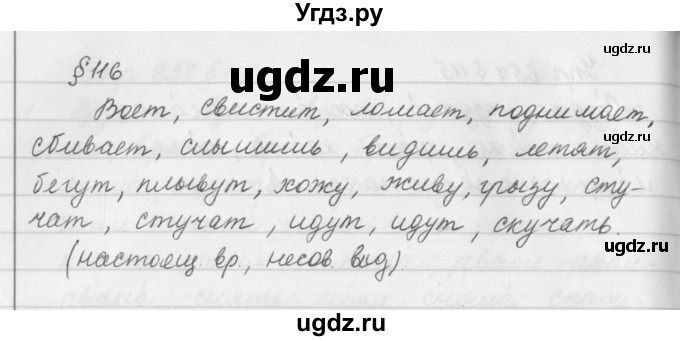 Угдз.ру
§ 116
ugdz.ru
Воет, свистит, ломает, поднимает,
сбивает, слышишь, видишь, летят,
бегут, плывут, хожу, живу, грызу, сту-
чат, стучат, идут, идут, скучать.
ugdz.ru
(настоящ вр., несов. вид)
ugdz.ru
ugdz.ru